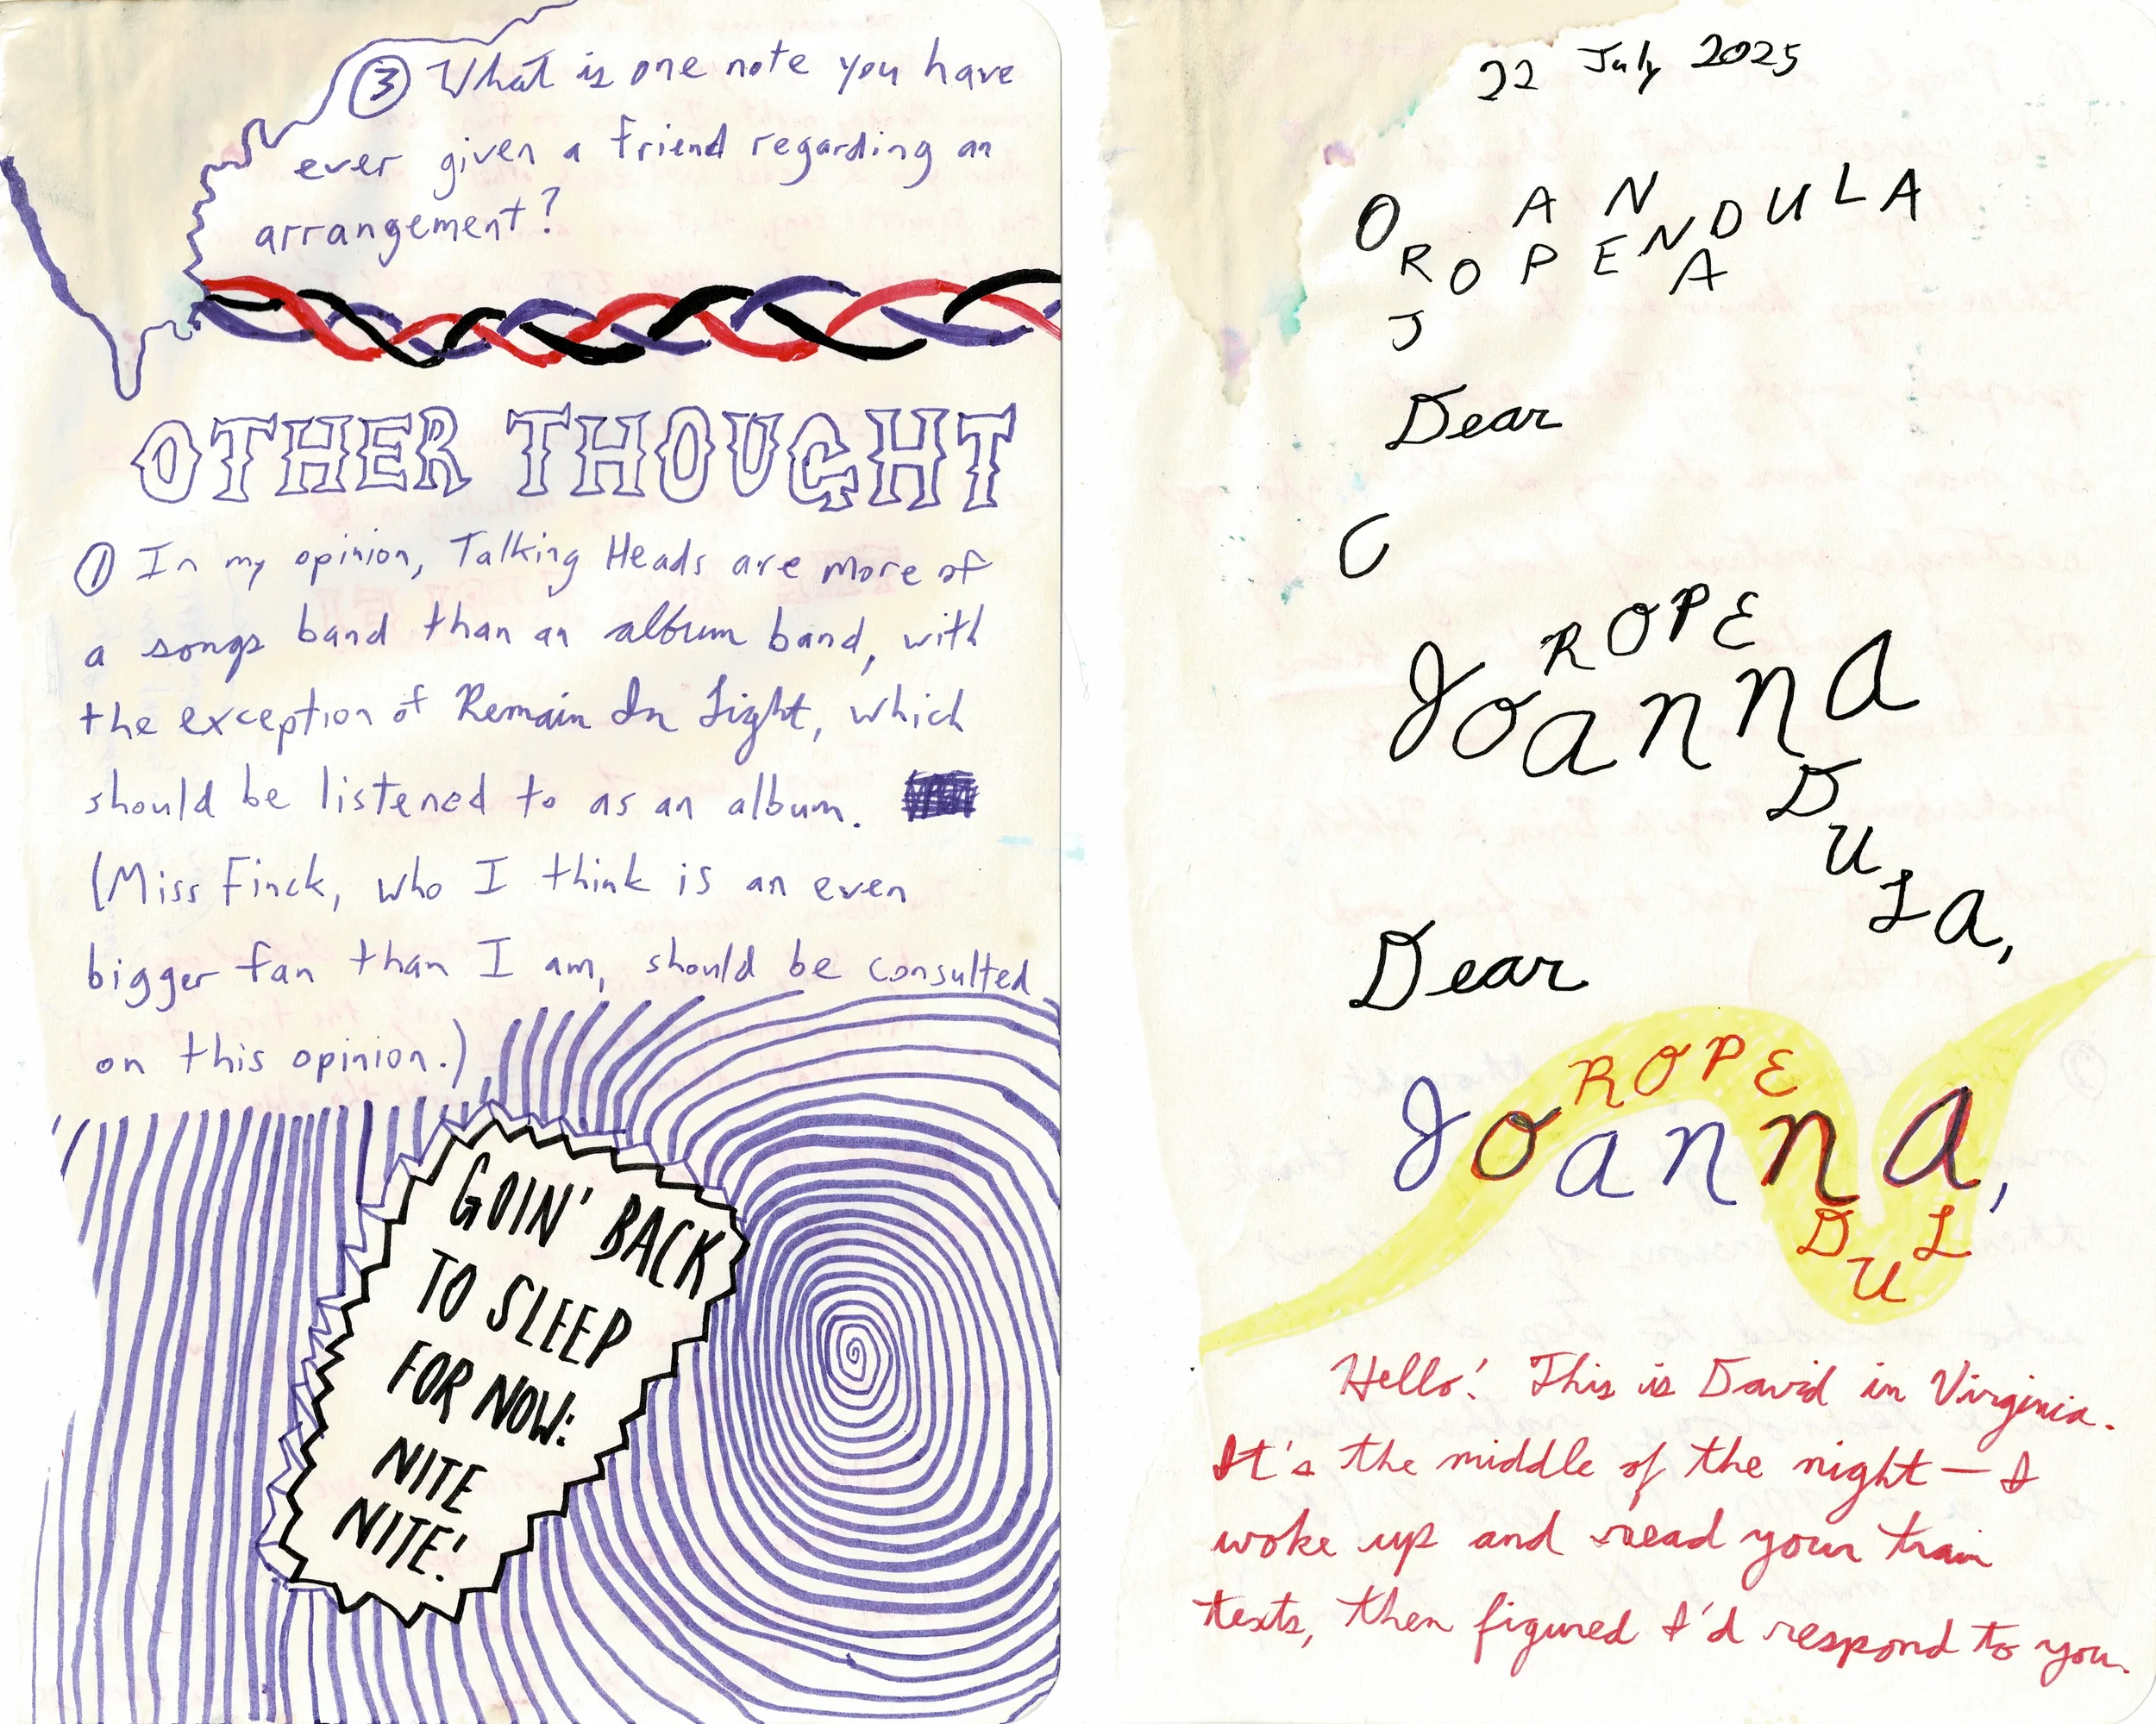 ③ What is one note you have
ever given a friend regarding an
arrangement?
OTHER THOUGHT
① In my opinion, Talking Heads are more of
a songs band than an album band, with
the exception of Remain In Light, which
should be listened to as an album.
(Miss Finck, who I think is an even
bigger fan than I am, should be consulted
on this opinion.)
GOIN' BACK
TO SLEEP
FOR NOW:
NITE
NITE!
22 July 2025
O A N D U L A
R O P E N A
J
Dear
C
ROPE
Joanna
DULA,
Dear
ROPE
Joanna,
DUL
Hello! This is David in Virginia.
It's the middle of the night — I
woke up and read your train
texts, then figured I'd respond to you.